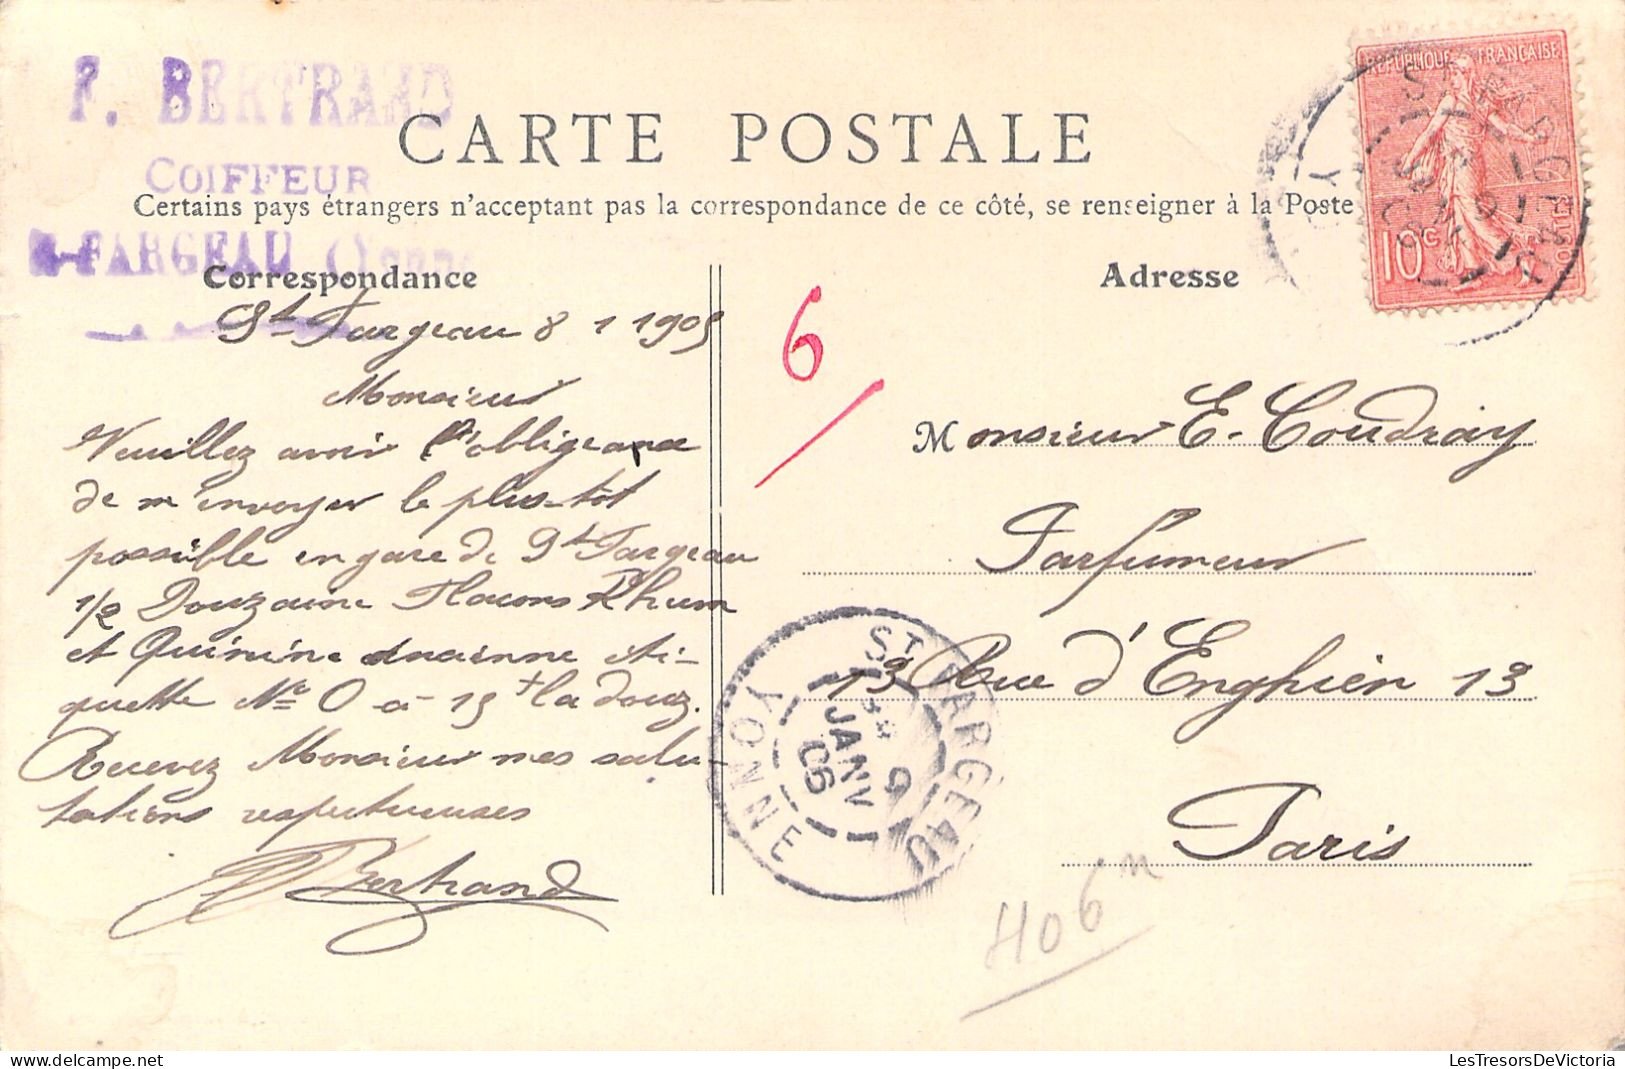 F. BERTRAND
COIFFEUR
St-FARGEAU (Yonne)
CARTE POSTALE
Certains pays étrangers n'acceptent pas la correspondance de ce côté, se renseigner à la Poste
Correspondance
Adresse
REPUBLIQUE FRANÇAISE
10c
ST FARGEAU
St Fargeau 8 1 1905
Monsieur
Veuillez avoir l'obligeance
de m'envoyer le plus-tôt
possible en gare de St Fargeau
1/2 Douzaine Flacons Rhum
et Quinine ancienne éti-
quette No 0 à 15 f la douz.
Recevez Monsieur mes salu-
tations respectueuses
Bertrand
6
Monsieur E. Coudray
Parfumeur
13 Rue d'Enghien 13
Paris
ST FARGEAU
9
JANV
05
YONNE
LesTresorsDeVictoria